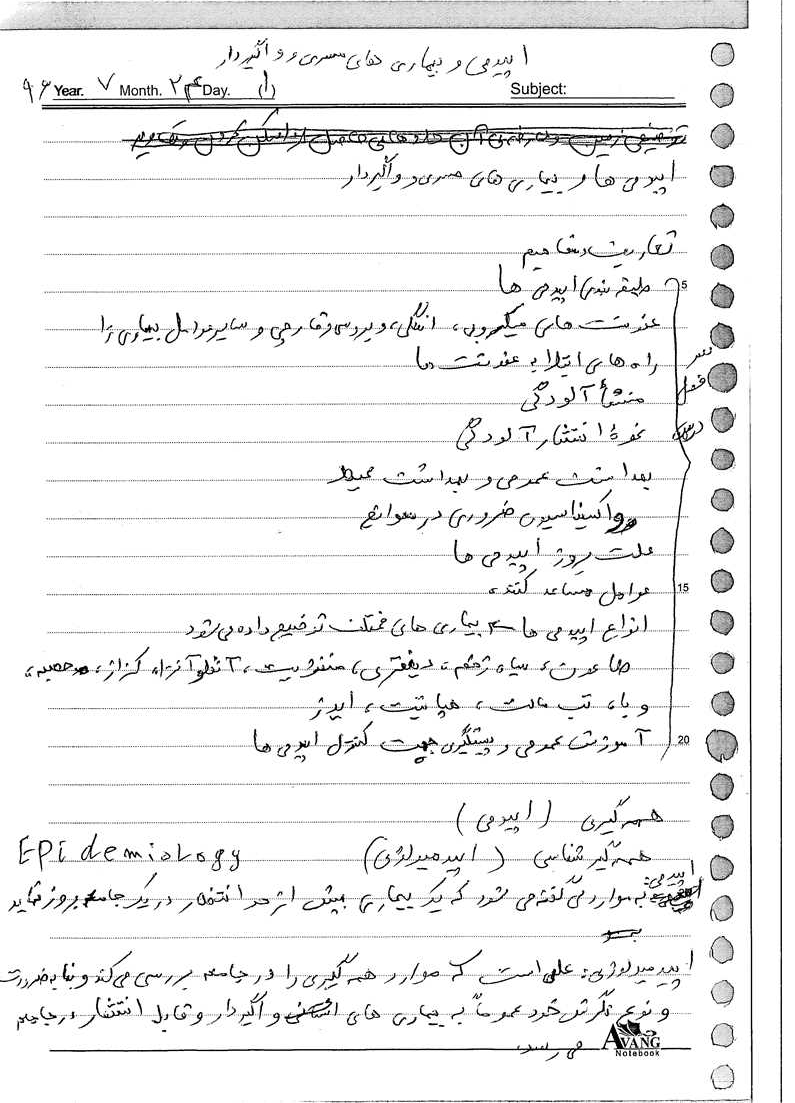 اپیدمی و بیماری های مسری و واگیردار
Subject:
(۱) Day. ۲۴ Month. ۷ Year. ۹۶
اپیدمی ها و بیماری های مسری و واگیردار
تعاریف و مفاهیم
5 طبقه بندی اپیدمی ها
عفونت های میکروبی، انگلی، ویروسی و قارچی و سایر عوامل بیماری زا
راه های ابتلا به عفونت ها
سر فصل درس
منشأ آلودگی
نحوۀ انتشار آلودگی
بهداشت عمومی و بهداشت محیط
واکسیناسیون ضروری در سوانح
علت بروز اپیدمی ها
15 عوامل مساعد کننده
انواع اپیدمی ها بیماری های مختلف توضیح داده می شود
طاعون، سیاه زخم، دیفتری، مننژیت، آنفلوآنزا، کزاز، حصبه،
وبا، تب مالت، هپاتیت، ایدز
20 آموزش عمومی و پیشگیری جهت کنترل اپیدمی ها
همه گیری (اپیدمی)
همه گیر شناسی (اپیدمیولوژی) EPidemiology
اپیدمی: به مواردی گفته می شود که یک بیماری بیش از حد انتظار در یک جامعه بروز نماید
اپیدمیولوژی: علمی است که موارد همه گیری را در جامعه بررسی می کند و بنا به ضرورت
و نوع نگرش خود عموماً به بیماری های واگیردار و قابل انتشار در جامعه
می رسد.
AVANG
Notebook